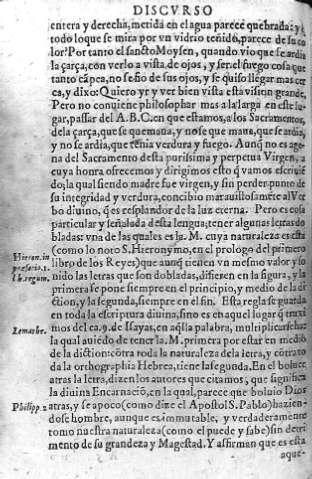 DISCVRSO
entera y derecha, metida en el agua parece quebrada: y
todo lo que se mira por vn vidrio teñido, parece de su co
lor? Por tanto el sancto Moysen, quando vio que se ardia
la çarça, con verlo a vista de ojos, y ser el fuego cosa que
tanto campea, no se fiò de sus ojos, y se quiso llegar mas cer
ca, y dixo: Quiero yr y ver bien vista esta vision grande.
Pero no conuiene philosophar mas a la larga en este lu-
gar, passar del A.B.C. en que estamos, a los Sacramentos,
de la çarça, que se quemaua, y no se quemaua, que se ardia,
y no se ardia, que tenia verdura y fuego. Aunq̃ no es age-
na del Sacramento desta purissima y perpetua Virgen, a
cuya honra ofrecemos y dirigimos esto q̃ vamos escriuiẽ
do; la qual siendo madre fue virgen, y sin perder punto de
su integridad y verdura, concibio marauillosamẽte al Ver
bo diuino, q̃ es resplandor de la luz eterna. Pero es cosa
particular y señalada desta lengua; tener algunas letras do
bladas: vna de las quales es la. M. cuya naturaleza es esta
(como lo noto S. Hieronymo, en el prologo del primero
Hieron. in
præfatio. 1.
lib. regum.
libro de los Reyes) que aunq̃ tienen vn mesmo valor y so
nido las letras que son dobladas, difieren en la figura, y la
primera se pone siempre en el principio, y medio de la di
ction, y la segunda, siempre en el fin. Esta regla se guarda
en toda la escriptura diuina, sino es en aquel lugar q̃ truxi
mos del ca. 9. de Esayas, en aq̃lla palabra,
la qual auiẽdo de tener la. M. primera por estar en medio
de la diction: cõtra toda la naturaleza de la letra, y cõtrato
da la orthographia Hebrea, tiene la segunda. En el boluer
atras la letra, dizen los autores que citamos, que significa
la diuina Encarnaciõ, en la qual, parece que boluio Dios
Philipp. 2
atras, y se apoco (como dize el Apostol S. Pablo) hazien-
dose hombre, aunque es immutable, y verdaderamente
tomo nuestra naturaleza (como el puede y sabe) sin detri
mento de su grandeza y Magestad. Y afirman que es esta
aque-